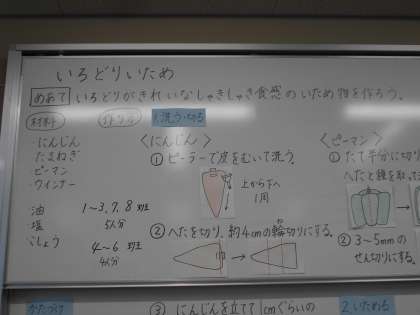 いろどりいため
めあて いろどりがきれいなしゃきしゃき食感のいため物を作ろう。
材料
1.洗う・切る
・にんじん
・たまねぎ
・ピーマン
・ウインナー
油
塩
こしょう
1~3,7,8 班
5人分
4~6 班
4人分
<にんじん>
① ピーラーで皮をむいて洗う。
上から下へ
1周
② へたを切り、約4cmの輪切りにする。
③ にんじんを立てて1cmぐらいの
<ピーマン>
① たて半分に切り
へたと種を取って
② 3~5mmの
せん切りにする。
かたづけ
2.いためる